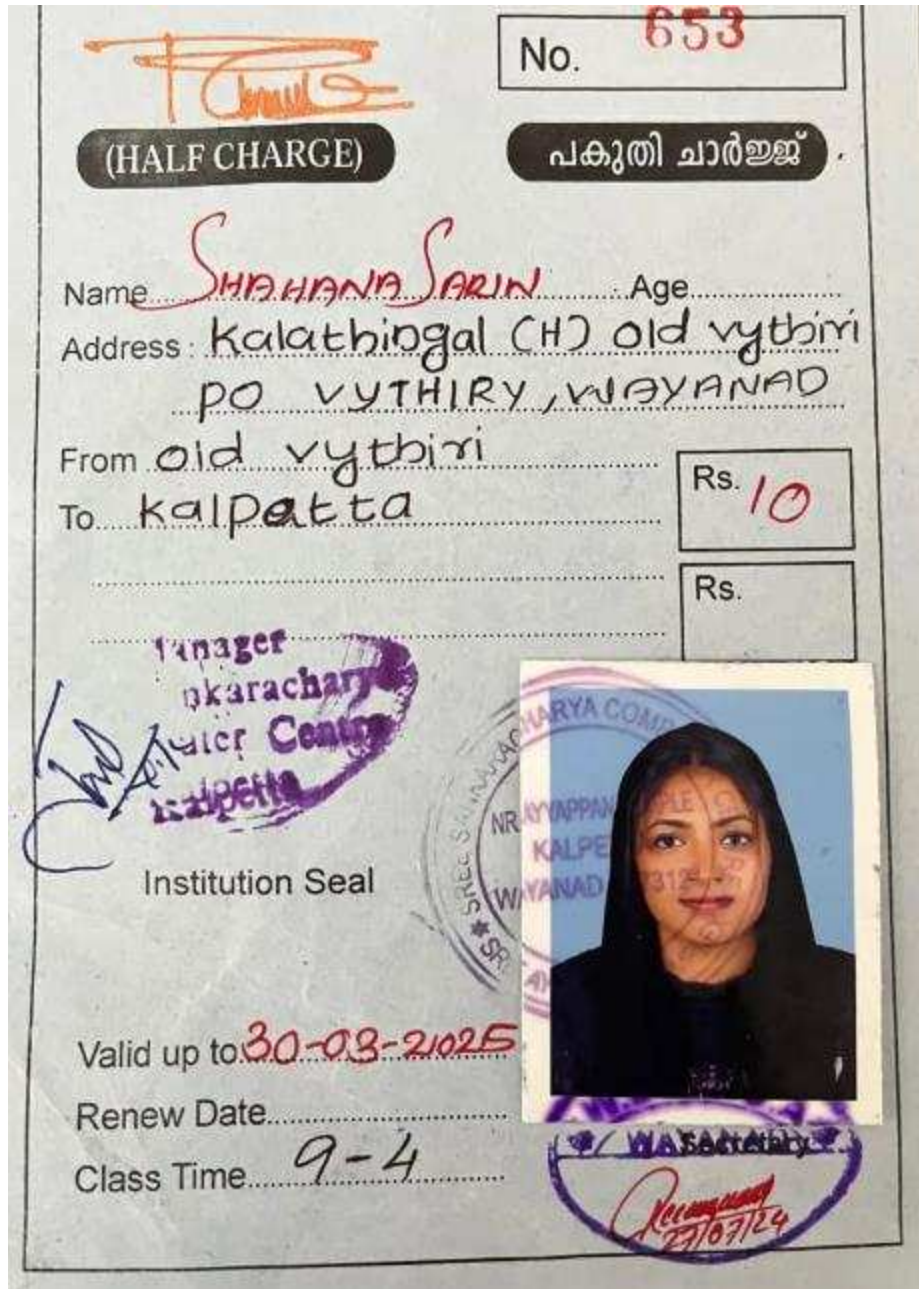 No. 653
(HALF CHARGE)
പകുതി ചാർജ്ജ്
Name SHAHANA SARIN Age
Address : Kalathingal (H) old vythiri
PO VYTHIRY, WAYANAD
From old vythiri
To kalpatta
Rs. 10
Rs.
Centre
Kalpetta
Institution Seal
SREE
HARYA COMP
NR.AYYAPPAN
KALPE
WAYANAD
Valid up to 30-03-2025
Renew Date
Class Time 9-4
WAYANAD
Secretary
27/07/24